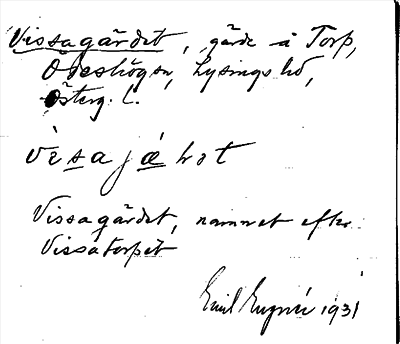 Vissagärdet, gärde å Torp,
Ödeshögs sn, Lysings hd,
Österg. l.
visajæḷot
Vissagärdet, namnet efter
Vissatorpet
Emil 1931